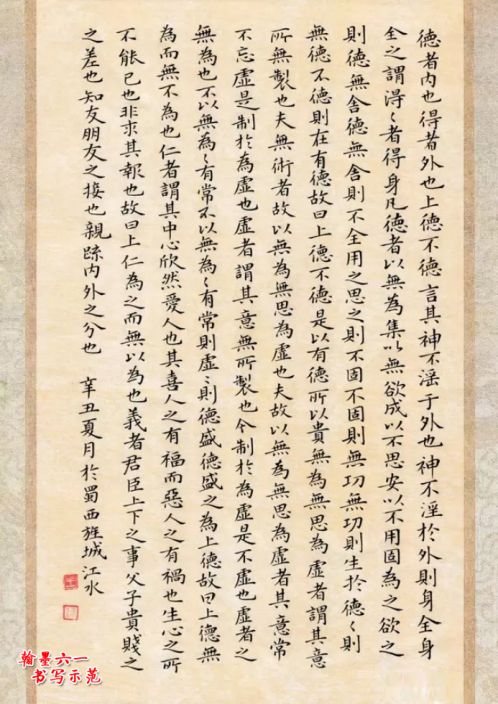 德者内也得者外也上德不德言其神不淫于外也神不淫於外則身全身
全之謂得〻者得身凡德者以無為集以無欲成以不思安以不用固為之欲之
則德無舍德無舍則不全用之思之則不固不固則無功無功則生於德〻則
無德不德則在有德故曰上德不德是以有德所以貴無為無思為虛者謂其意
所無製也夫無術者故以無為無思為虛也夫故以無為無思為虛者其意常
不忘虛是制於為虛也虛者謂其意無所製也今制於為虛是不虛也虛者之
無為也不以無為〻有常不以無為〻有常則虛〻則德盛德盛之為上德故曰上德無
為而無不為也仁者謂其中心欣然愛人也其喜人之有福而惡人之有禍也生心之所
不能已也非求其報也故曰上仁為之而無以為也義者君臣上下之事父子貴賤之
之差也知友朋友之接也親疏内外之分也 辛丑夏月於蜀西旌城江水
翰墨六一
书写示范